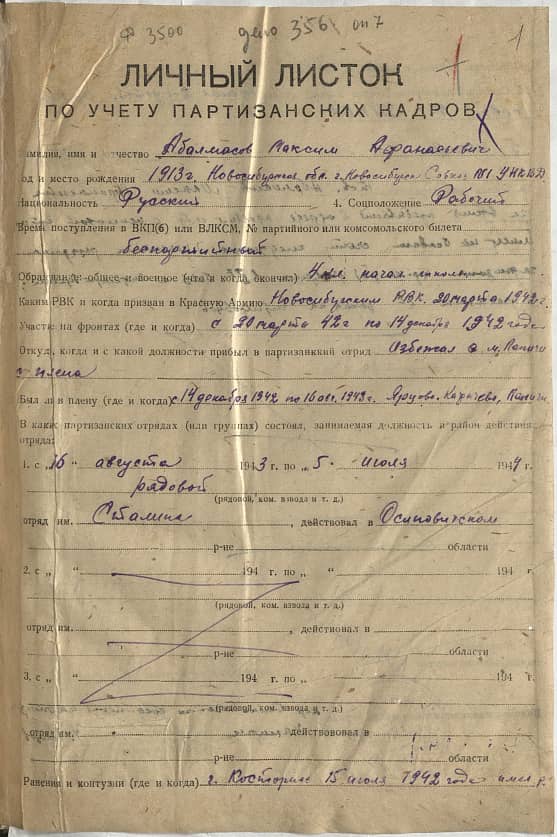 ф 3500 дело 356 оп 7
1
ЛИЧНЫЙ ЛИСТОК
ПО УЧЕТУ ПАРТИЗАНСКИХ КАДРОВ
Фамилия, имя и отчество Абалмасов Максим Афанасьевич
год и место рождения 1913 г. Новосибирская обл. г. Новосибирск Совхоз №1 УНКВД
Национальность Русский 4. Соцположение Рабочий
Время поступления в ВКП(б) или ВЛКСМ, № партийного или комсомольского билета
беспартийный
Образование: общее и военное (что и когда окончил) 4 кл. начал. школы
Каким РВК и когда призван в Красную Армию Новосибирским РВК. 20 марта 1942 г.
Участие на фронтах (где и когда) с 20 марта 42 г по 14 декабря 1942 года
Откуда, когда и с какой должности прибыл в партизанский отряд Избежал с м.
с плена
Был ли в плену (где и когда) с 14 декабря 1942 по 16 1943 г. Ярцево,
В каких партизанских отрядах (или группах) состоял, занимаемая должность и район действия
отряда:
1. с „16 “ августа 1943 г. по „5 “ июля 1944 г.
рядовой
(рядовой, ком. взвода и т. д.)
отряд им. Сталина, действовал в Осиповичском
р-не области
2. с „ “ 194 г. по „ “ 194 г.
(рядовой, ком. взвода и т. д.)
отряд им. , действовал в
р-не области
3. с „ “ 194 г. по „ “ 194 г.
(рядовой, ком. взвода и т. д.)
отряд им. действовал в
р-не области
Ранения и контузии (где и когда) г. 15 июля 1942 года